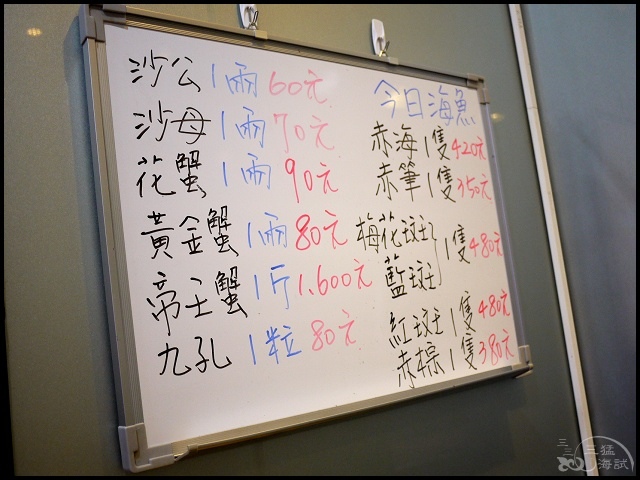 沙公 1兩 60元
沙母 1兩 70元
花蟹 1兩 90元
黃金蟹 1兩 80元
帝王蟹 1斤 1,600元
九孔 1粒 80元
今日海魚
赤海 1隻 420元
赤筆 1隻 350元
梅花斑
藍斑 1隻 480元
紅斑 1隻 480元
赤棕 1隻 380元
三三
三猛
海試